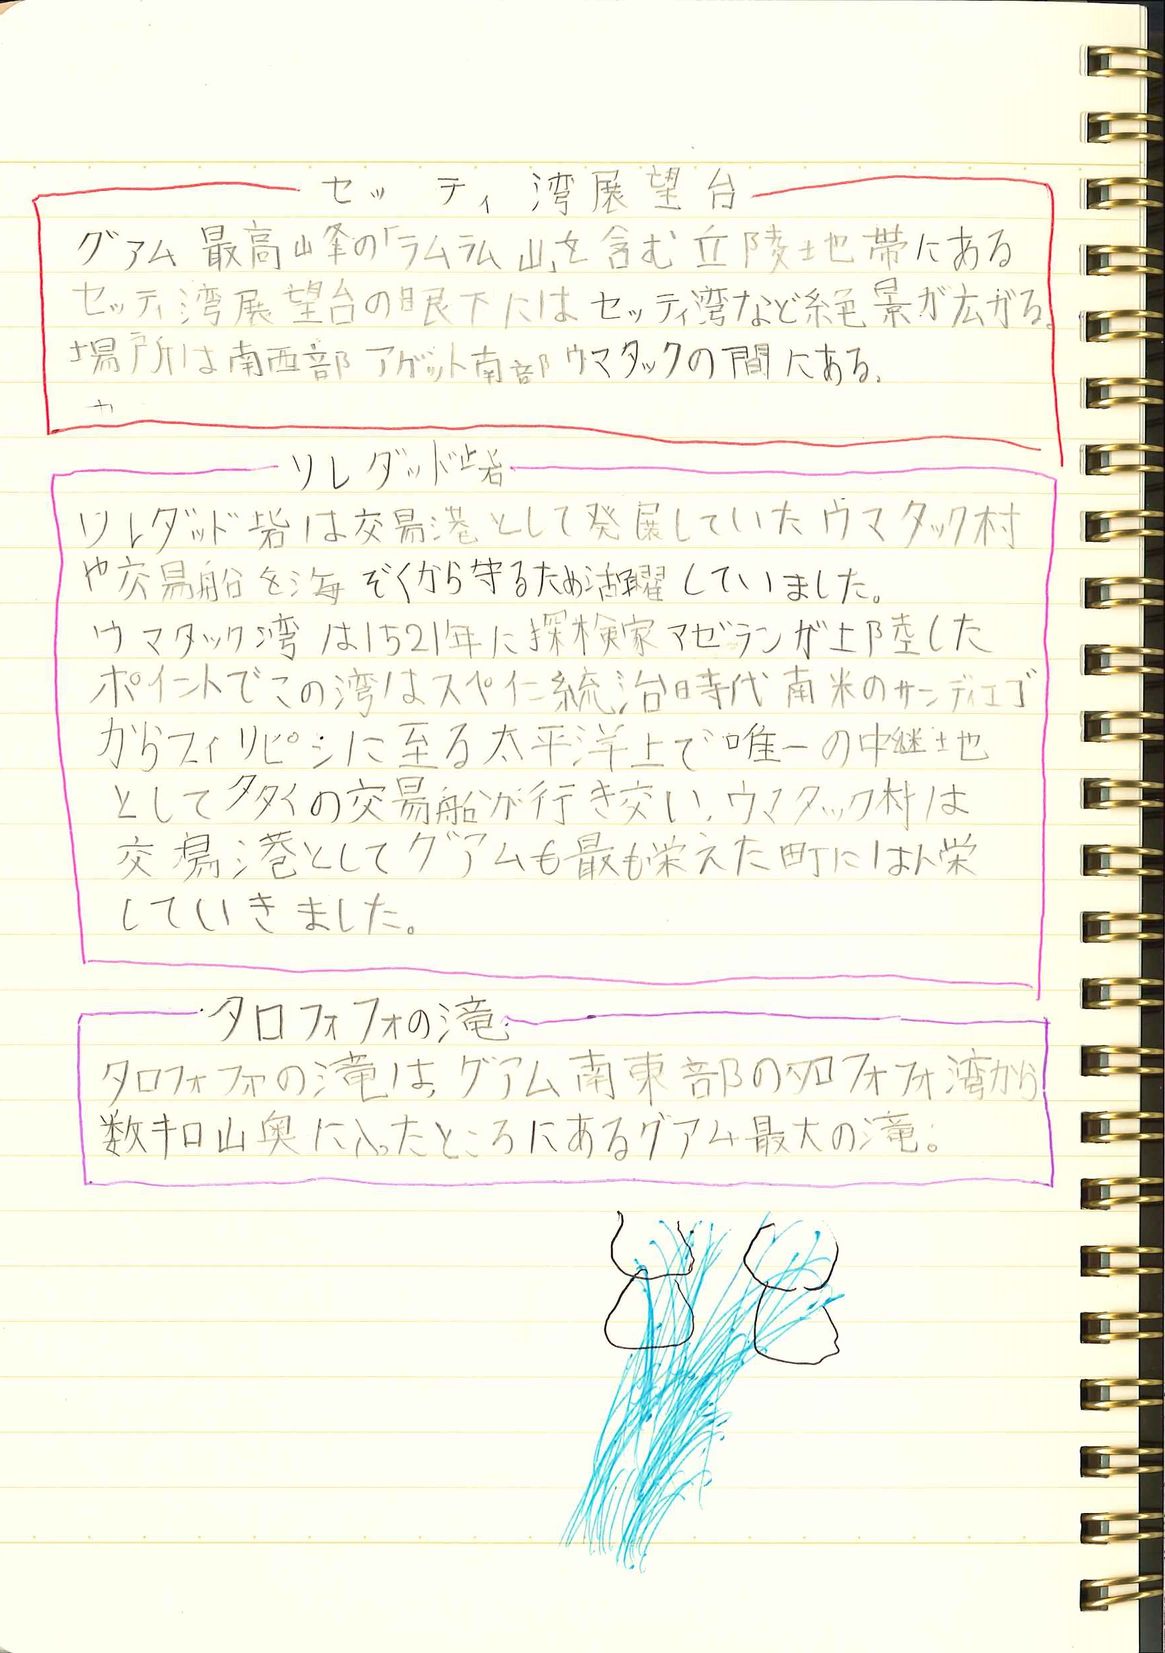 セッティ湾展望台
グアム最高峰の「ラムラム山」を含む丘陵地帯にある
セッティ湾展望台の眼下にはセッティ湾など絶景が広がる。
場所は南西部アガット南部ウマタックの間にある。
カ
ソレダッド砦
ソレダッド砦は交易港として発展していたウマタック村
や交易船を海ぞくから守るため活躍していました。
ウマタック湾は1521年に探検家マゼランが上陸した
ポイントでこの湾はスペイン統治時代南米のサンディエゴ
からフィリピンに至る太平洋上で唯一の中継地
としてタタイの交易船が行き交い、ウマタック村は
交易港としてグアムも最も栄えた町にはん栄
していきました。
タロフォフォの滝
タロフォフォの滝は、グアム南東部のタロフォフォ湾から
数キロ山奥に入ったところにあるグアム最大の滝。